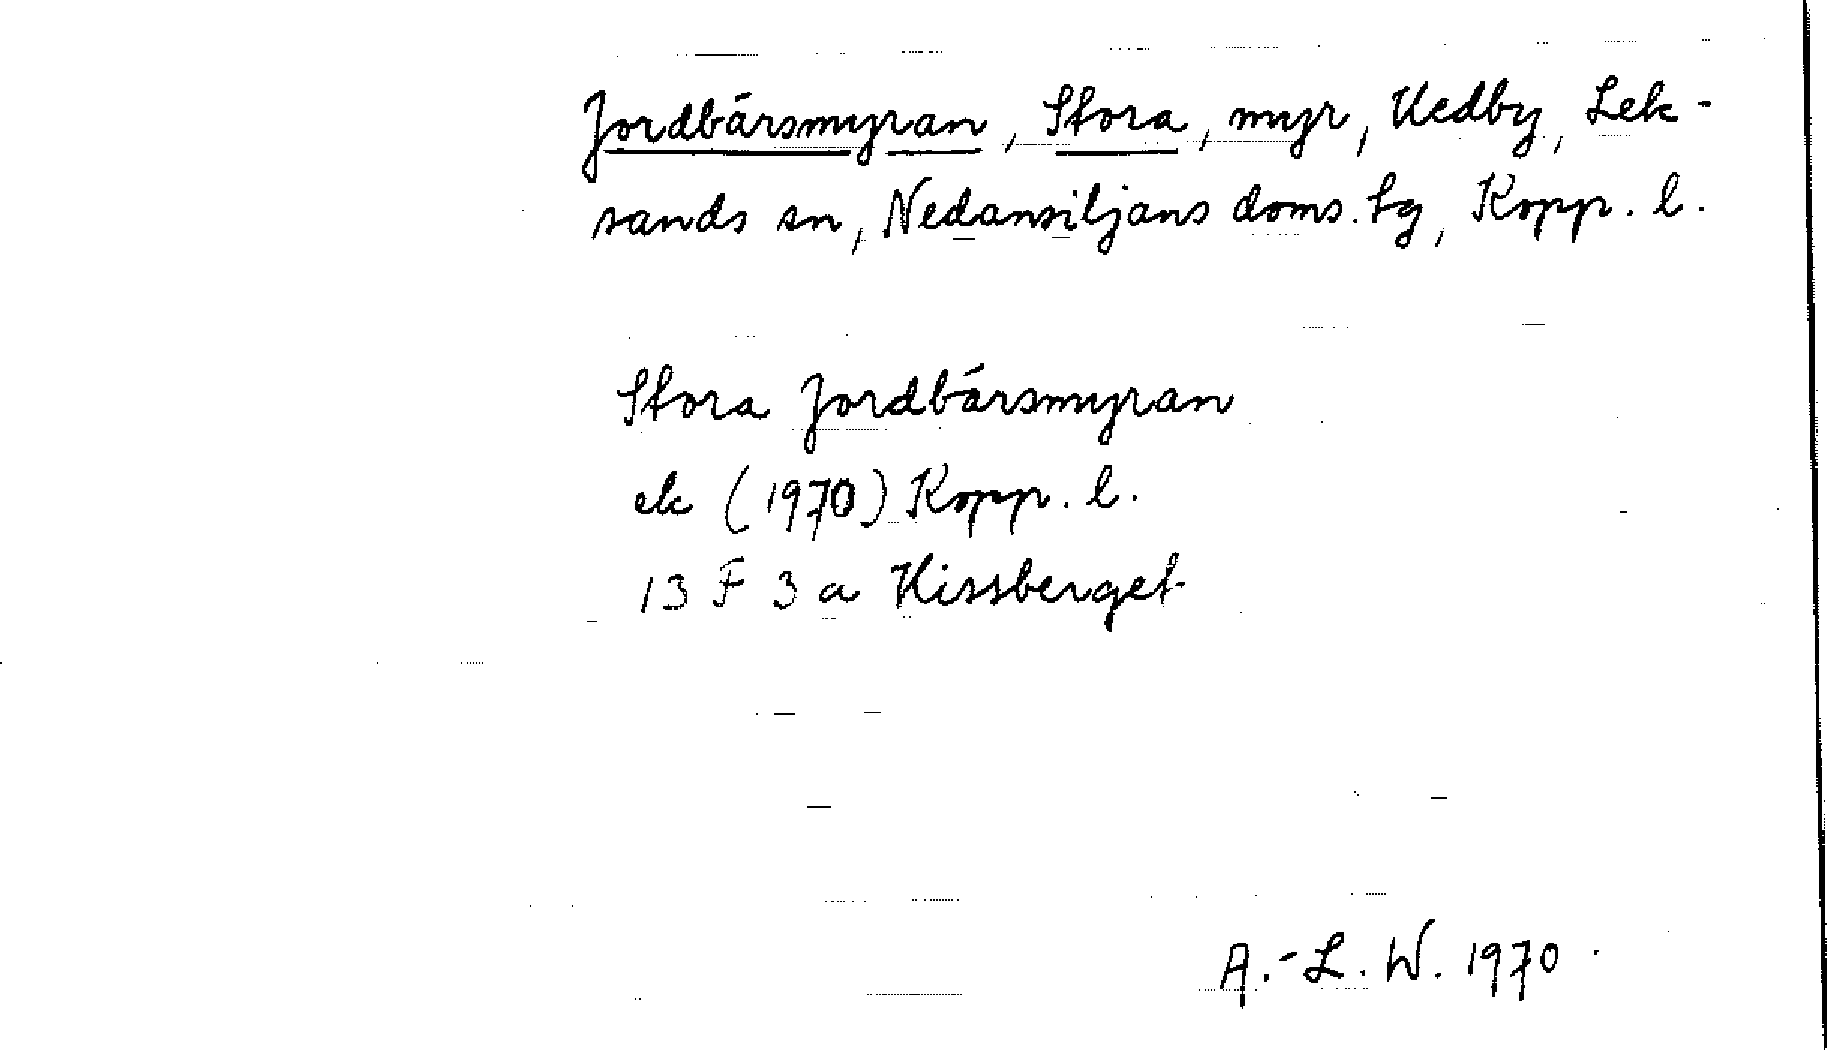 Jordbärsmyran, Stora, myr, Hedby, Lek-
sands sn, Nedansiljans doms. tg, Kopp. l.
Stora Jordbärsmyran
ek (1970) Kopp. l.
13 F 3 a Hissberget
A.-L. W. 1970